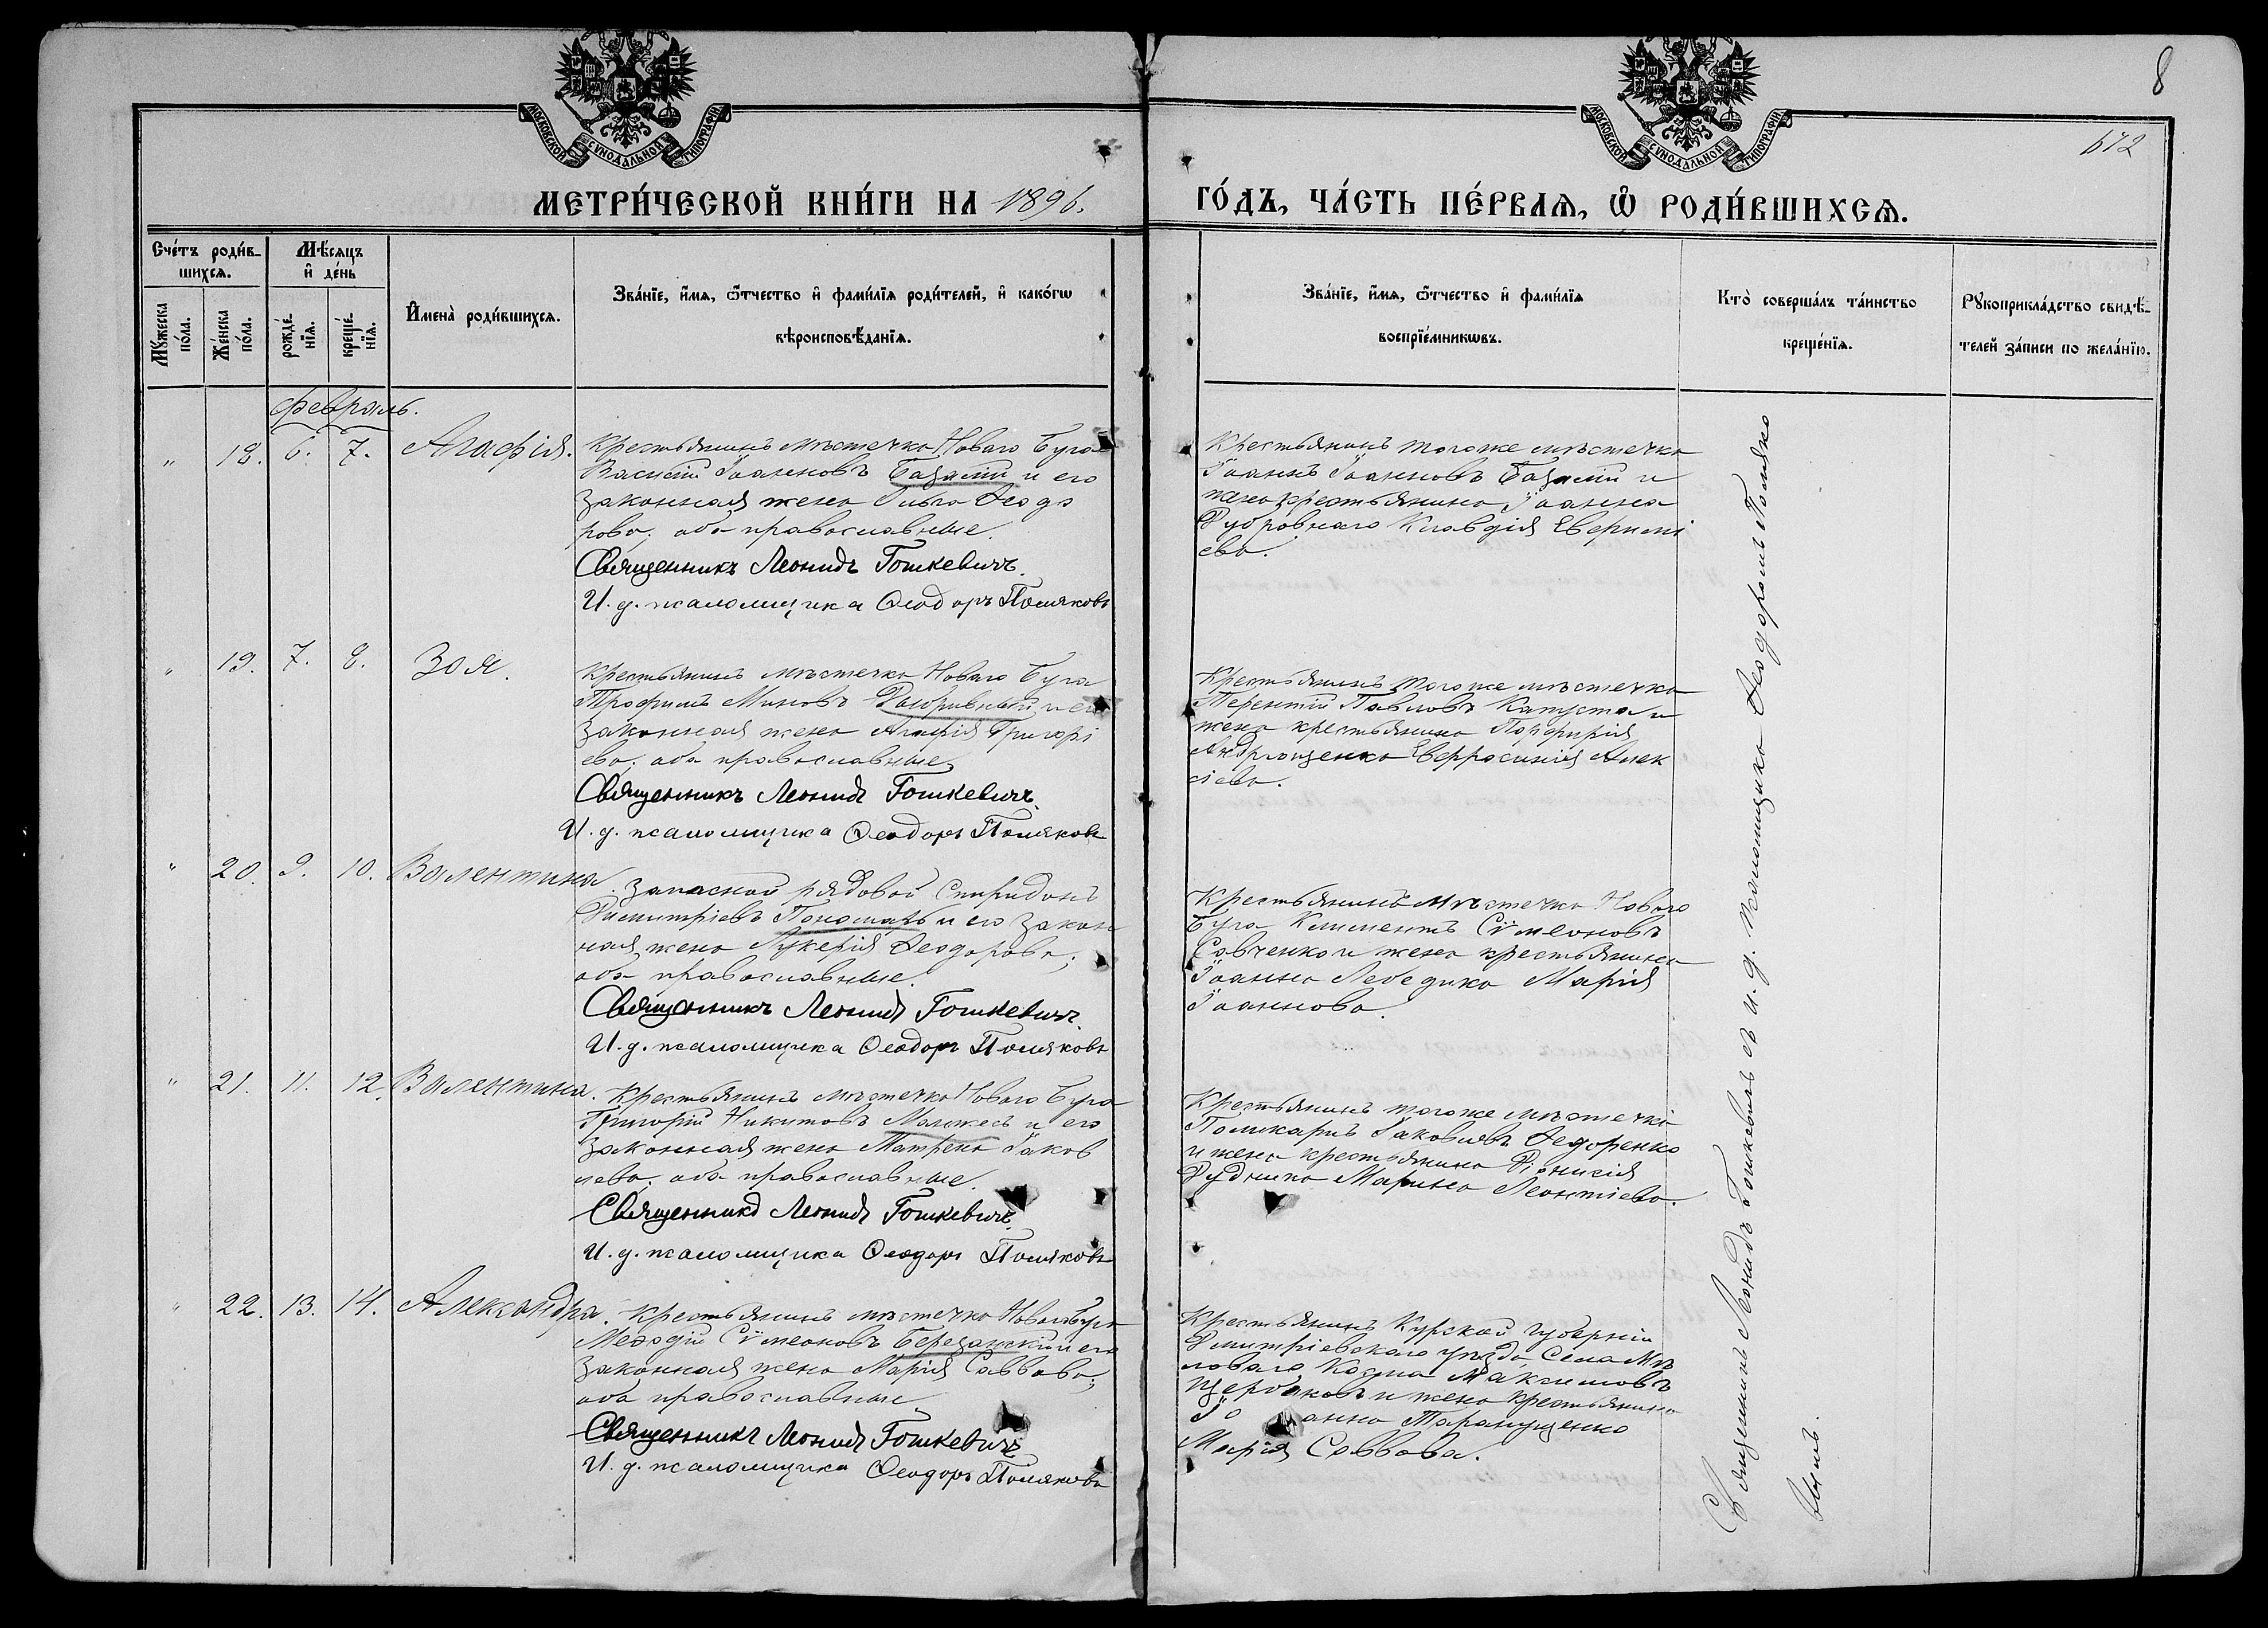 МОСКОВСКОЙ СУНОДАЛЬНОЙ ТИПОГРАФІИ
МОСКОВСКОЙ СУНОДАЛЬНОЙ ТИПОГРАФІИ
8
672
МЕТРИ́ЧЕСКОЙ КНИ́ГИ НА 1896.
ГО́ДЪ, ЧА́СТЬ ПЕ́РВАѦ, Ѽ РОДИ́ВШИХСѦ.
Сче́тъ роди́в-
шихсѧ.
Мѣ́сѧцъ
и҆ де́нь
Мꙋ́жеска по́ла.
Же́нска по́ла.
рожде́-
нїѧ.
креще́-
нїѧ.
И҆мена̀ роди́вшихсѧ.
Зва́нїе, и҆́мѧ, ѻ҆́тчество и҆ фами́лїѧ роди́телей, и҆ како́гѡ
вѣроисповѣ́данїѧ.
Зва́нїе, и҆́мѧ, ѻ҆́тчество и҆ фами́лїѧ
воспрїе́мникѡвъ.
Кто̀ соверша́лъ та́инство
креще́нїѧ.
Рꙋкоприкла́дство свидѣ́-
телей за́писи по жела́нїю.
Февраль.
" 18. 6. 7. Агафія.
Крестьянинъ мѣстечка Новаго Буга
Василій Іоанновъ Базалій и его
законная жена Ольга Ѳеодо
рова; оба православные.
Священникъ Леонидъ Гошкевичъ.
И. д. псаломщика Ѳеодоръ Поляковъ
Крестьянинъ тогоже мѣстечка
Іоаннъ Іоанновъ Базалій и
жена крестьянина Іоанна
Дубровнаго Клавдія Евфимі
ева.
" 19. 7. 8. Зоя.
Крестьянинъ мѣстечка Новаго Буга
Трофимъ Миновъ и его
законная жена Агафія Григорі
ева; оба православные
Священникъ Леонидъ Гошкевичъ.
И. д. псаломщика Ѳеодоръ Поляковъ
Крестьянинъ тогоже мѣстечка
Терентій Павловъ Капуста и
жена крестьянина Порфирія
Евфросинія Алек
сіева.
" 20. 9. 10. Валентина.
Запасной рядовой Спиридонъ
Димитріевъ Пономарь и его закон
ная жена Лукерія Ѳеодорова;
оба православные.
Священникъ Леонидъ Гошкевичъ.
И. д. псаломщика Ѳеодоръ Поляковъ
Крестьянинъ мѣстечка Новаго
Буга Климентъ Сѵмеоновъ
Савченко и жена крестьянина
Іоанна Лебедика Марія
Іоаннова.
" 21. 11. 12. Валентина.
Крестьянинъ мѣстечка Новаго Буга
Григорій Никитовъ и его
законная жена Матрена Іаков
лева; оба православные.
Священникъ Леонидъ Гошкевичъ.
И. д. псаломщика Ѳеодоръ Поляковъ
Крестьянинъ тогоже мѣстечка
Поликарпъ Іаковлевъ Ѳедоренко
и жена крестьянина Діонисія
Рудника Марина Леонтіева.
" 22. 13. 14. Александра.
Крестьянинъ мѣстечка Новаго Буга
Меѳодій Сѵмеоновъ Березанскій и его
законная жена Марія Саввова;
оба православные
Священникъ Леонидъ Гошкевичъ
И. д. псаломщика Ѳеодоръ Поляковъ
Крестьянинъ Курской губерніи
Дмитріевскаго уѣзда, села Мѣ
ловаго Косма Максимовъ
Щербаковъ и жена крестьянина
Іоанна Таранущенко
Марія Саввова.
Священникъ Леонидъ Гошкевичъ съ и. д. псаломщика Ѳеодоромъ Поляко
вымъ.